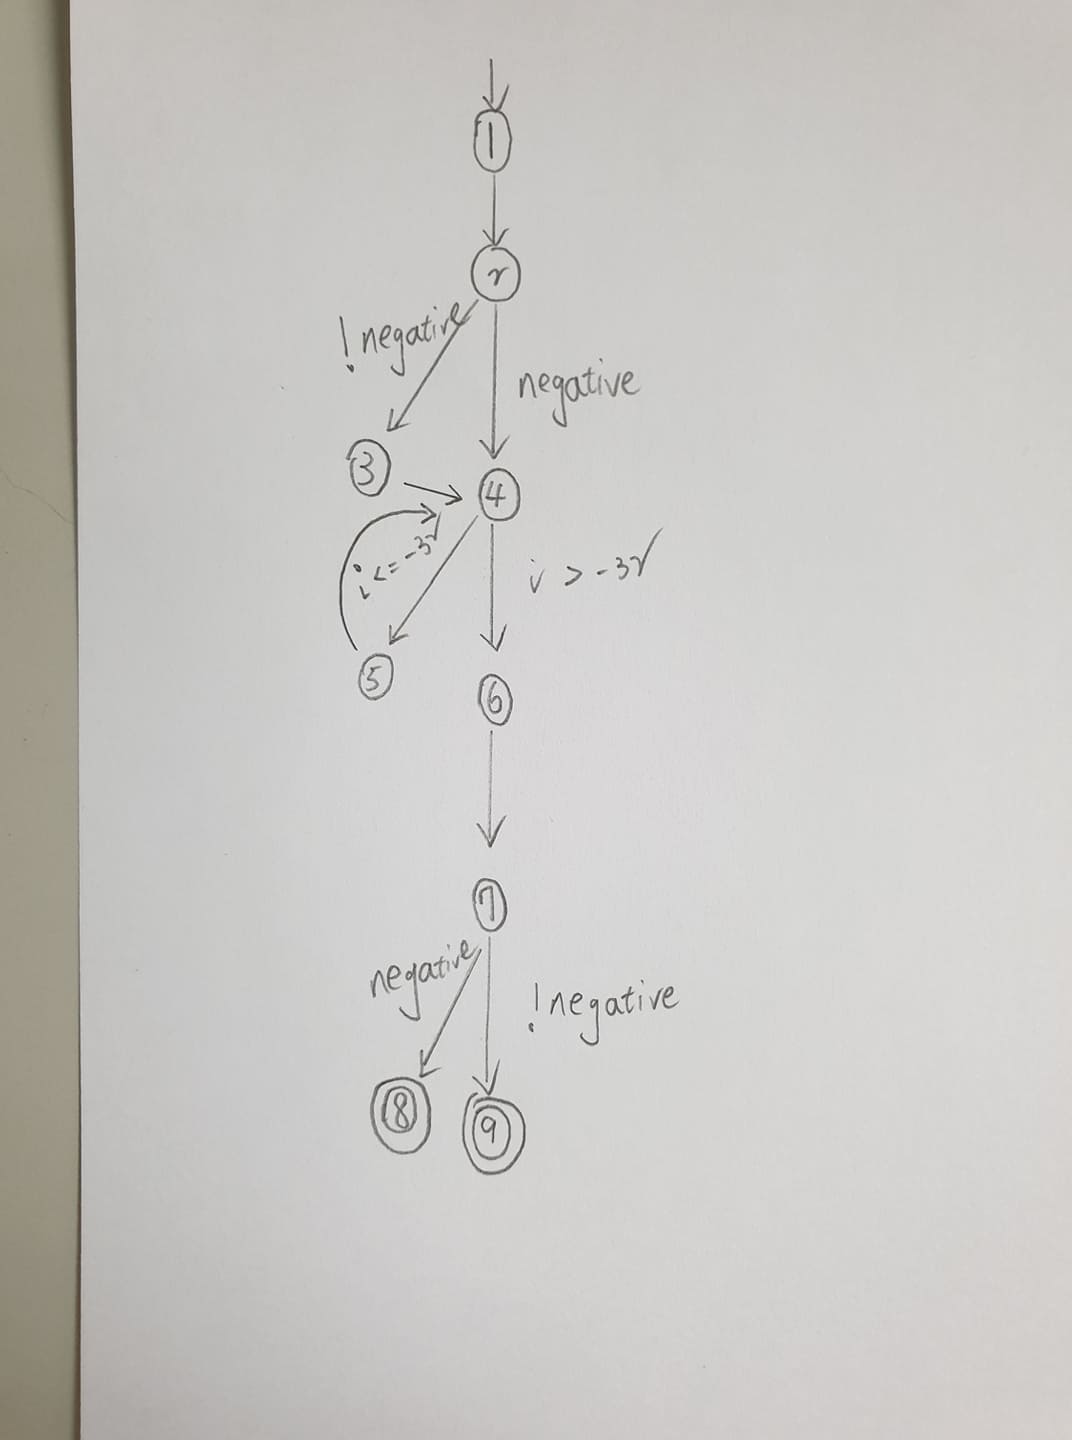 1
2
!negative
negative
3
4
i <= -32
i > -32
5
6
7
negative
!negative
8
9